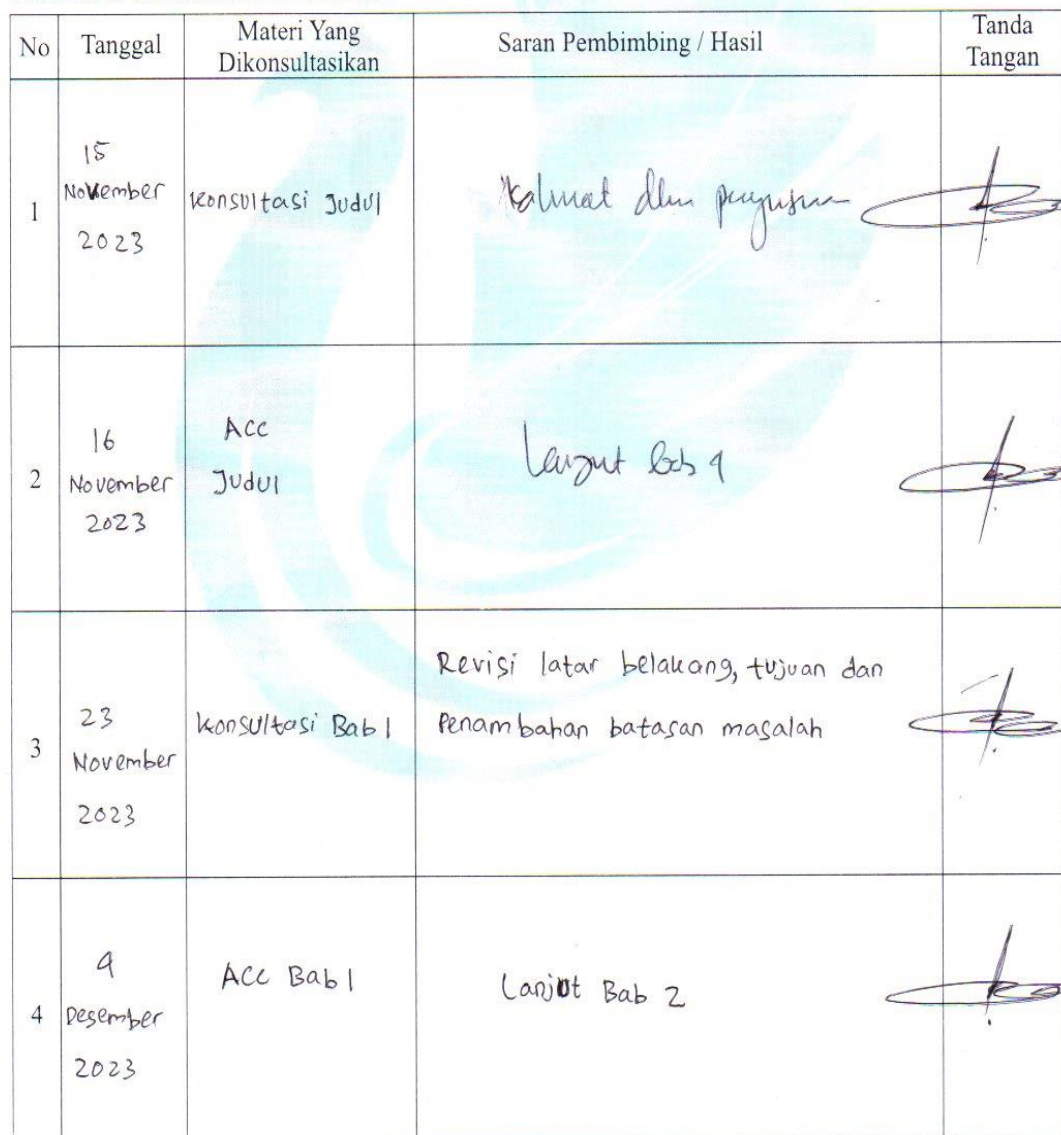 No Tanggal Materi Yang Dikonsultasikan Saran Pembimbing / Hasil Tanda Tangan
1
15
November
2023
Konsultasi Judul
Kalimat dlm
2
16
November
2023
Acc
Judul
Lanjut Bab 1
3
23
November
2023
Konsultasi Bab 1
Revisi latar belakang, tujuan dan
Penambahan batasan masalah
4
Desember
2023
Acc Bab 1
Lanjut Bab 2